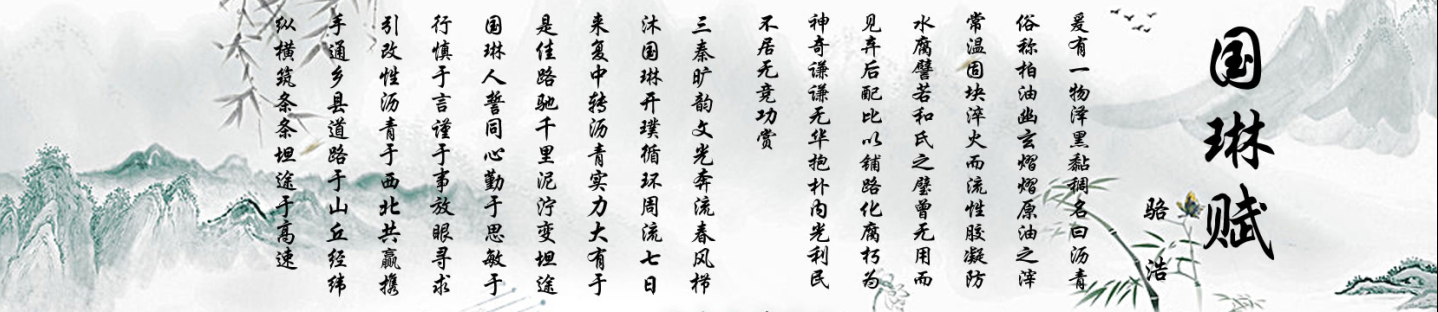 国琳赋
骆浩
爰有一物泽黑黏稠名曰沥青
俗称柏油幽玄熠熠原油之滓
常温固块淬火而流性胶凝防
水腐譬若和氏之璧曾无用而
见弃后配比以铺路化腐朽为
神奇谦谦无华抱朴内光利民
不居无竞功赏
三秦旷韵文光奔流春风栉
沐国琳开璞循环周流七日
来复中转沥青实力大有于
是佳路驰千里泥泞变坦途
国琳人誓同心勤于思敏于
行慎于言谨于事放眼寻求
引改性沥青于西北共赢携
手通乡县道路于山丘经纬
纵横筑条条坦途于高速